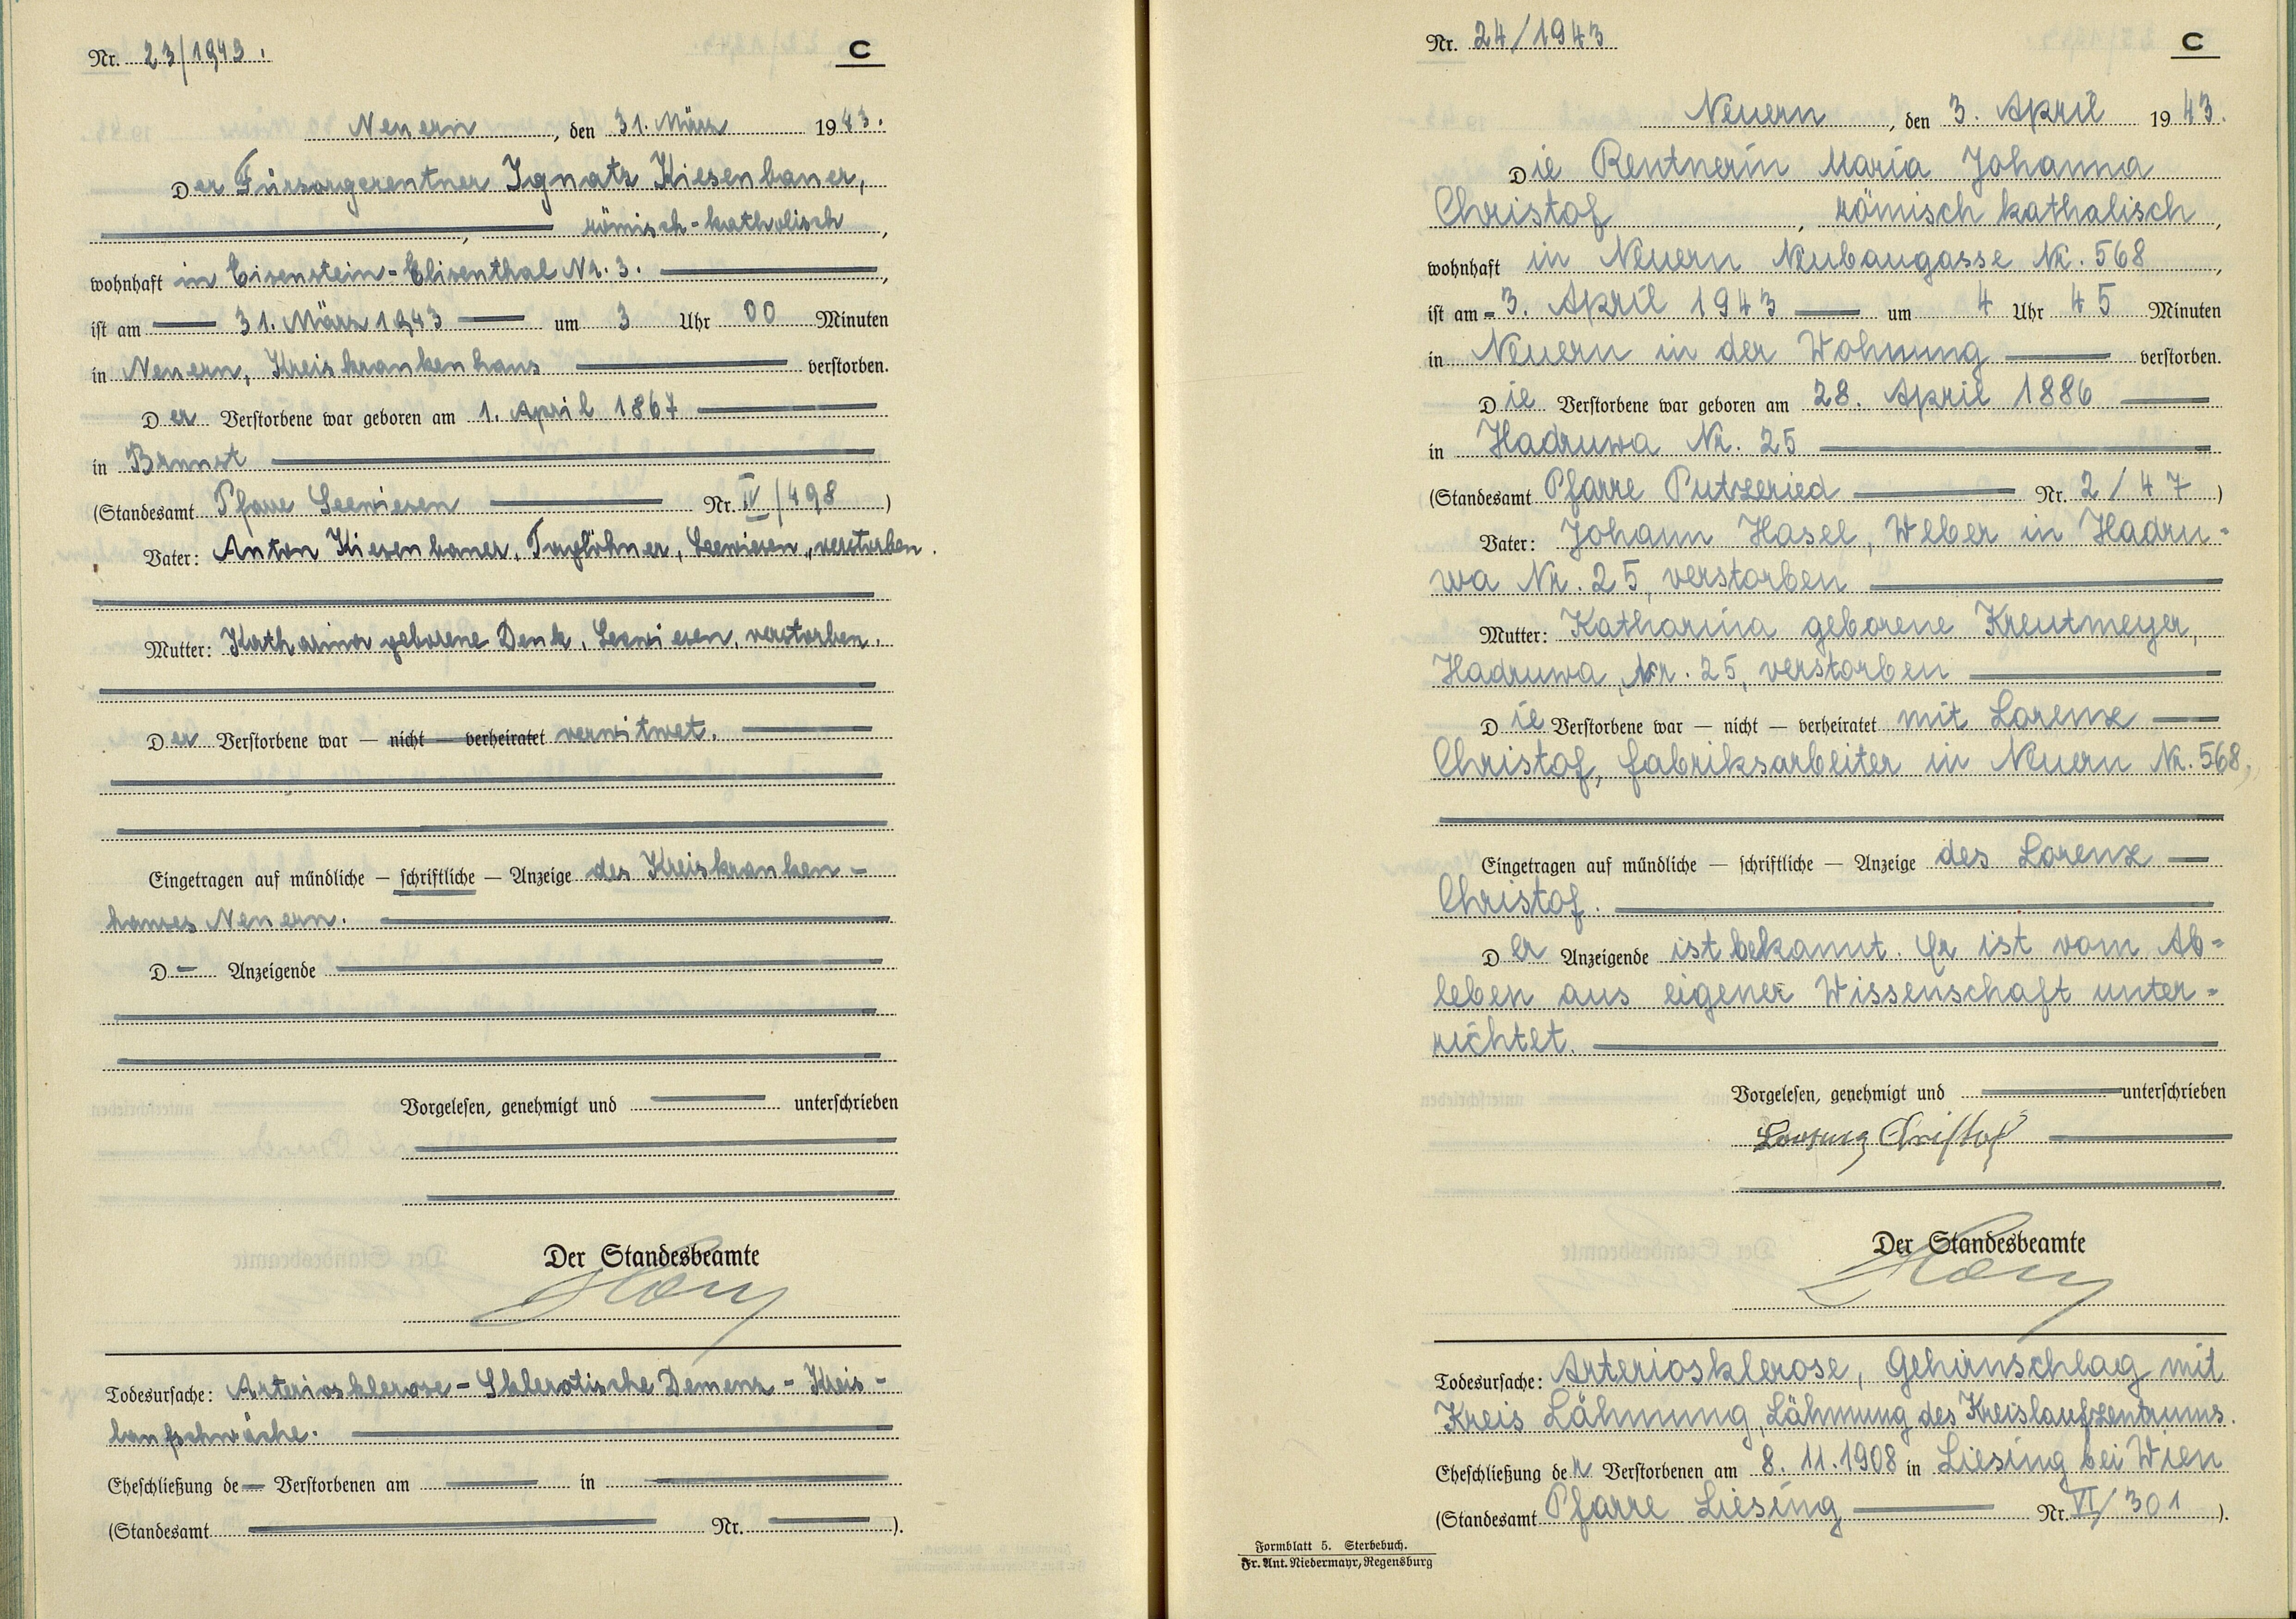 Nr. 23/1943.
C
Neuern, den 31. März 1943.
Der Fürsorgerentner Ignatz Kiesenbauer,
, römisch-katholisch,
wohnhaft in Eisenstein-Elisenthal Nr. 3.,
ist am 31. März 1943 um 3 Uhr 00 Minuten
in Neuern, Kreiskrankenhaus verstorben.
Der Verstorbene war geboren am 1. April 1867
in Brunst
(Standesamt Pfarre Seewiesen Nr. IV/498)
Vater: Anton Kiesenbauer, Taglöhner, Seewiesen, verstorben.
Mutter: Katharina geborene Denk, Seewiesen, verstorben.
Der Verstorbene war — nicht — verheiratet verwitwet.
Eingetragen auf mündliche — schriftliche — Anzeige des Kreiskranken-
hauses Neuern.
D— Anzeigende
Vorgelesen, genehmigt und unterschrieben
Der Standesbeamte
Todesursache: Arteriosklerose - Sklerotische Demenz - Kreis-
laufschwäche.
Eheschließung de— Verstorbenen am in
(Standesamt Nr. ).
Nr. 24/1943
C
Neuern, den 3. April 1943.
Die Rentnerin Maria Johanna
Christof, römisch kathalisch,
wohnhaft in Neuern Neubaugasse Nr. 568,
ist am 3. April 1943 um 4 Uhr 45 Minuten
in Neuern in der Wohnung verstorben.
Die Verstorbene war geboren am 28. April 1886
in Hadruwa Nr. 25
(Standesamt Pfarre Putzeried Nr. 2/47)
Vater: Johann Hasel, Weber in Hadru-
wa Nr. 25, verstorben
Mutter: Katharina geborene Kreutmeyer,
Hadruwa, Nr. 25, verstorben
Die Verstorbene war — nicht — verheiratet mit Lorenz
Christof, Fabriksarbeiter in Neuern Nr. 568,
Eingetragen auf mündliche — schriftliche — Anzeige des Lorenz
Christof.
Der Anzeigende ist bekannt. Er ist vom Ab-
leben aus eigener Wissenschaft unter-
richtet.
Vorgelesen, genehmigt und unterschrieben
Lorenz Christof
Der Standesbeamte
Todesursache: Arteriosklerose, Gehirnschlag mit
Kreis Lähmung, Lähmung des Kreislaufzentrums.
Eheschließung der Verstorbenen am 8. 11. 1908 in Liesing bei Wien
(Standesamt Pfarre Liesing Nr. VI/301).
Formblatt 5. Sterbebuch.
Fr. Ant. Niedermayr, Regensburg